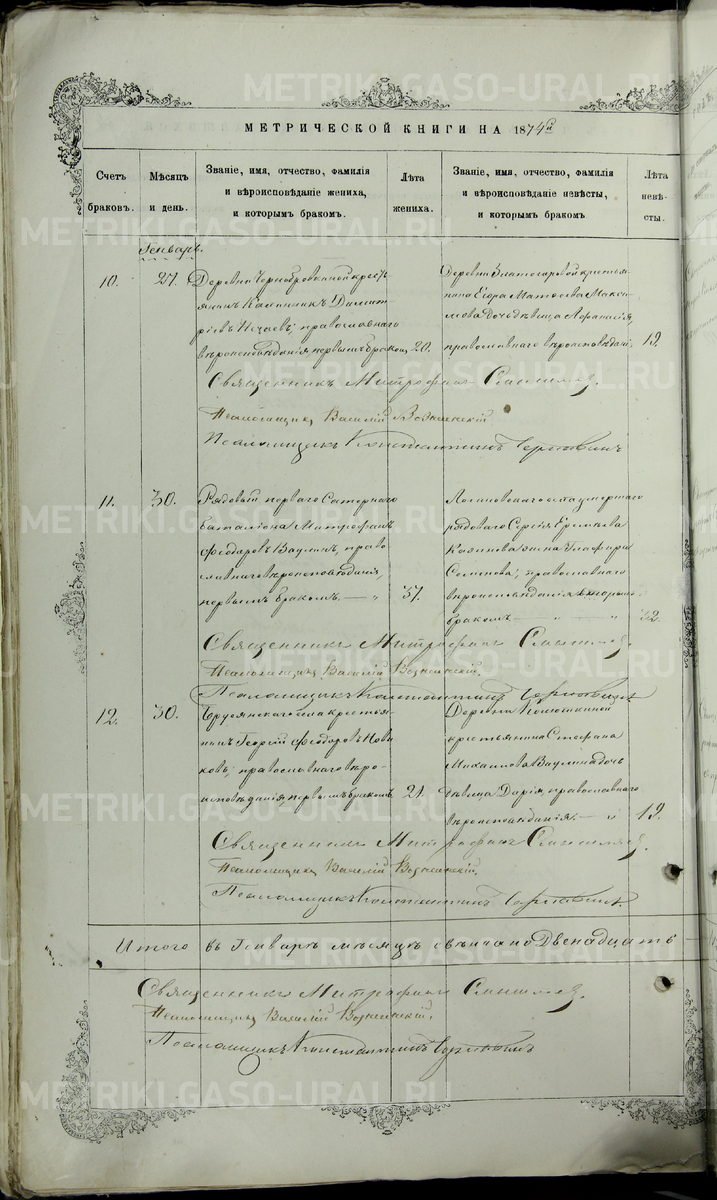 METRIKI.GASO-URAL.RU
МЕТРИЧЕСКОЙ КНИГИ НА 1874й
Счетъ браковъ.
Мѣсяцъ и день.
Званіе, имя, отчество, фамилія
и вѣроисповѣданіе жениха,
и которымъ бракомъ.
Лѣта жениха.
Званіе, имя, отчество, фамилія
и вѣроисповѣданіе невѣсты,
и которымъ бракомъ
Лѣта невѣ-
сты.
Генварь.
10.
27.
Деревни Чернобровиной кресть
янинъ Каллиникъ Димит
ріевъ Нечаевъ; православнаго
вѣроисповѣданія первымъ бракомъ
20.
Деревни Златогоровой крестья
нина Егора Матѳеева Макси
мова дочь дѣвица Аѳанасія,
православнаго вѣроисповѣданія,
19.
Священникъ Митрофанъ
Псаломщикъ Василій Вознесенскій
Псаломщикъ Константинъ
11.
30.
Рядовый перваго Сапернаго
баталіона Митрофанъ
Ѳеодоровъ Ваулинъ, право
славнаго вѣроисповѣданія,
первымъ бракомъ. — "
37.
рядоваго Сергія
жена Глафира
Семенова, православнаго
вѣроисповѣданія вторымъ
бракомъ — "
32.
Священникъ Митрофанъ
Псаломщикъ Василій Вознесенскій.
Псаломщикъ Константинъ
12.
30.
Бруснянскаго села крестья-
нинъ Георгій Ѳеодоровъ Нови
ковъ; православнаго вѣро-
исповѣданія первымъ бракомъ
21.
Деревни
крестьянина Стефана
Михаилова Ваулина дочь
дѣвица Дарія, православнаго
вѣроисповѣданія. — "
19.
Священникъ Митрофанъ
Псаломщикъ Василій Вознесенскій.
Псаломщикъ Константинъ
Итого въ Генварѣ мѣсяцѣ свѣнчано Двенадцать
Священникъ Митрофанъ
Псаломщикъ Василій Вознесенскій.
Псаломщикъ Константинъ